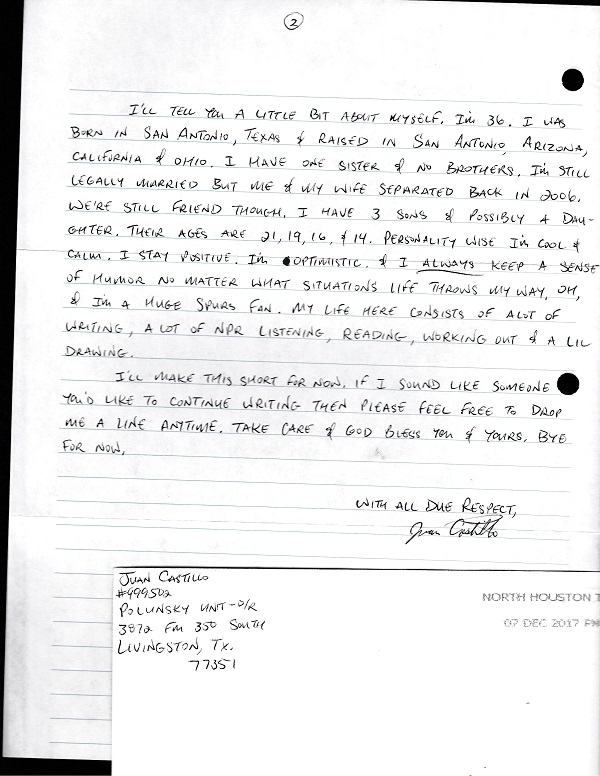 2
I'LL TELL YOU A LITTLE BIT ABOUT MYSELF. I'M 36. I WAS
BORN IN SAN ANTONIO, TEXAS & RAISED IN SAN ANTONIO, ARIZONA,
CALIFORNIA & OHIO. I HAVE ONE SISTER & NO BROTHERS. I'M STILL
LEGALLY MARRIED BUT ME & MY WIFE SEPARATED BACK IN 2006.
WE'RE STILL FRIEND THOUGH. I HAVE 3 SONS & POSSIBLY A DAU-
GHTER. THEIR AGES ARE 21, 19, 16, & 14. PERSONALITY WISE I'M COOL &
CALM. I STAY POSITIVE. I'M OPTIMISTIC. & I ALWAYS KEEP A SENSE
OF HUMOR NO MATTER WHAT SITUATIONS LIFE THROWS MY WAY. OH,
& I'M A HUGE SPURS FAN. MY LIFE HERE CONSISTS OF ALOT OF
WRITING, A LOT OF NPR LISTENING, READING, WORKING OUT & A LIL
DRAWING.
I'LL MAKE THIS SHORT FOR NOW. IF I SOUND LIKE SOMEONE
YOU'D LIKE TO CONTINUE WRITING THEN PLEASE FEEL FREE TO DROP
ME A LINE ANYTIME. TAKE CARE & GOD BLESS YOU & YOURS. BYE
FOR NOW.
WITH ALL DUE RESPECT,
Juan Castillo
JUAN CASTILLO
#999502
POLUNSKY UNIT-D/R
3872 FM 350 SOUTH
LIVINGSTON, TX.
77351
NORTH HOUSTON T
07 DEC 2017 PM